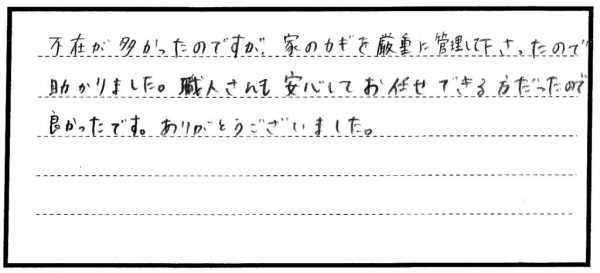 不在が多かったのですが、家のカギを厳重に管理して下さったので
助かりました。職人さんも安心してお任せできる方だったので
良かったです。ありがとうございました。